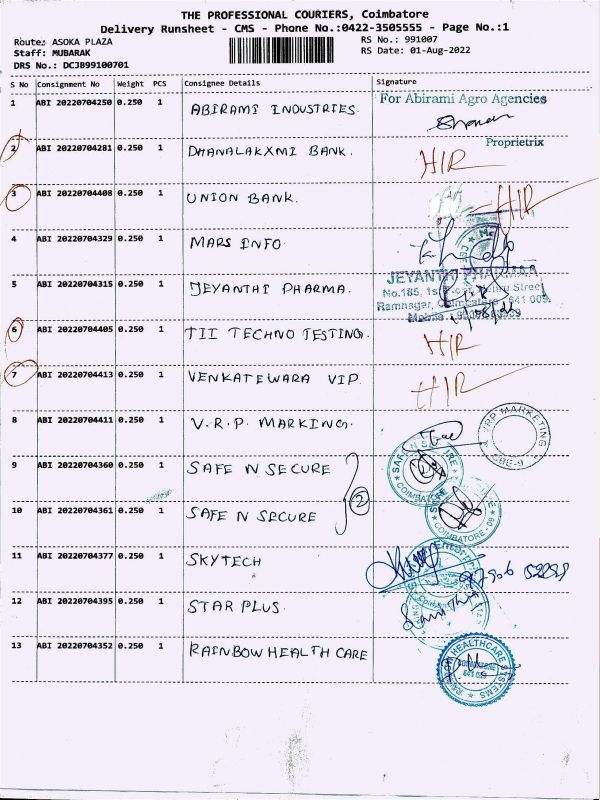 THE PROFESSIONAL COURIERS, Coimbatore
Delivery Runsheet - CMS - Phone No.:0422-3505555 - Page No.:1
Route: ASOKA PLAZA
RS No.: 991007
Staff: MUBARAK
RS Date: 01-Aug-2022
DRS No.: DCJB99100701
S No Consignment No Weight PCS Consignee Details Signature
1 ABI 20220704250 0.250 1 ABIRAMI INDUSTRIES. For Abirami Agro Agencies
Proprietrix
2 ABI 20220704281 0.250 1 DHANALAKXMI BANK. HIR
3 ABI 20220704408 0.250 1 UNION BANK. HIR
4 ABI 20220704329 0.250 1 MARS INFO.
5 ABI 20220704315 0.250 1 JEYANTHI PHARMA. JEYANTHI PHARMAA
No.185, 1st Street
Ramnagar, Coimbatore - 641 009.
Mobile
6 ABI 20220704405 0.250 1 TII TECHNO TESTING. HIR
7 ABI 20220704413 0.250 1 VENKATEWARA VIP. HIR
8 ABI 20220704411 0.250 1 V.R.P. MARKING. VRP MARKETING CBE-9
9 ABI 20220704360 0.250 1 SAFE N SECURE SAFE N SECURE COIMBATORE
2
10 ABI 20220704361 0.250 1 SAFE N SECURE COIMBATORE - 09
11 ABI 20220704377 0.250 1 SKYTECH
12 ABI 20220704395 0.250 1 STAR PLUS.
13 ABI 20220704352 0.250 1 RAINBOW HEALTH CARE RAINBOW HEALTHCARE SYSTEMS COIMBATORE